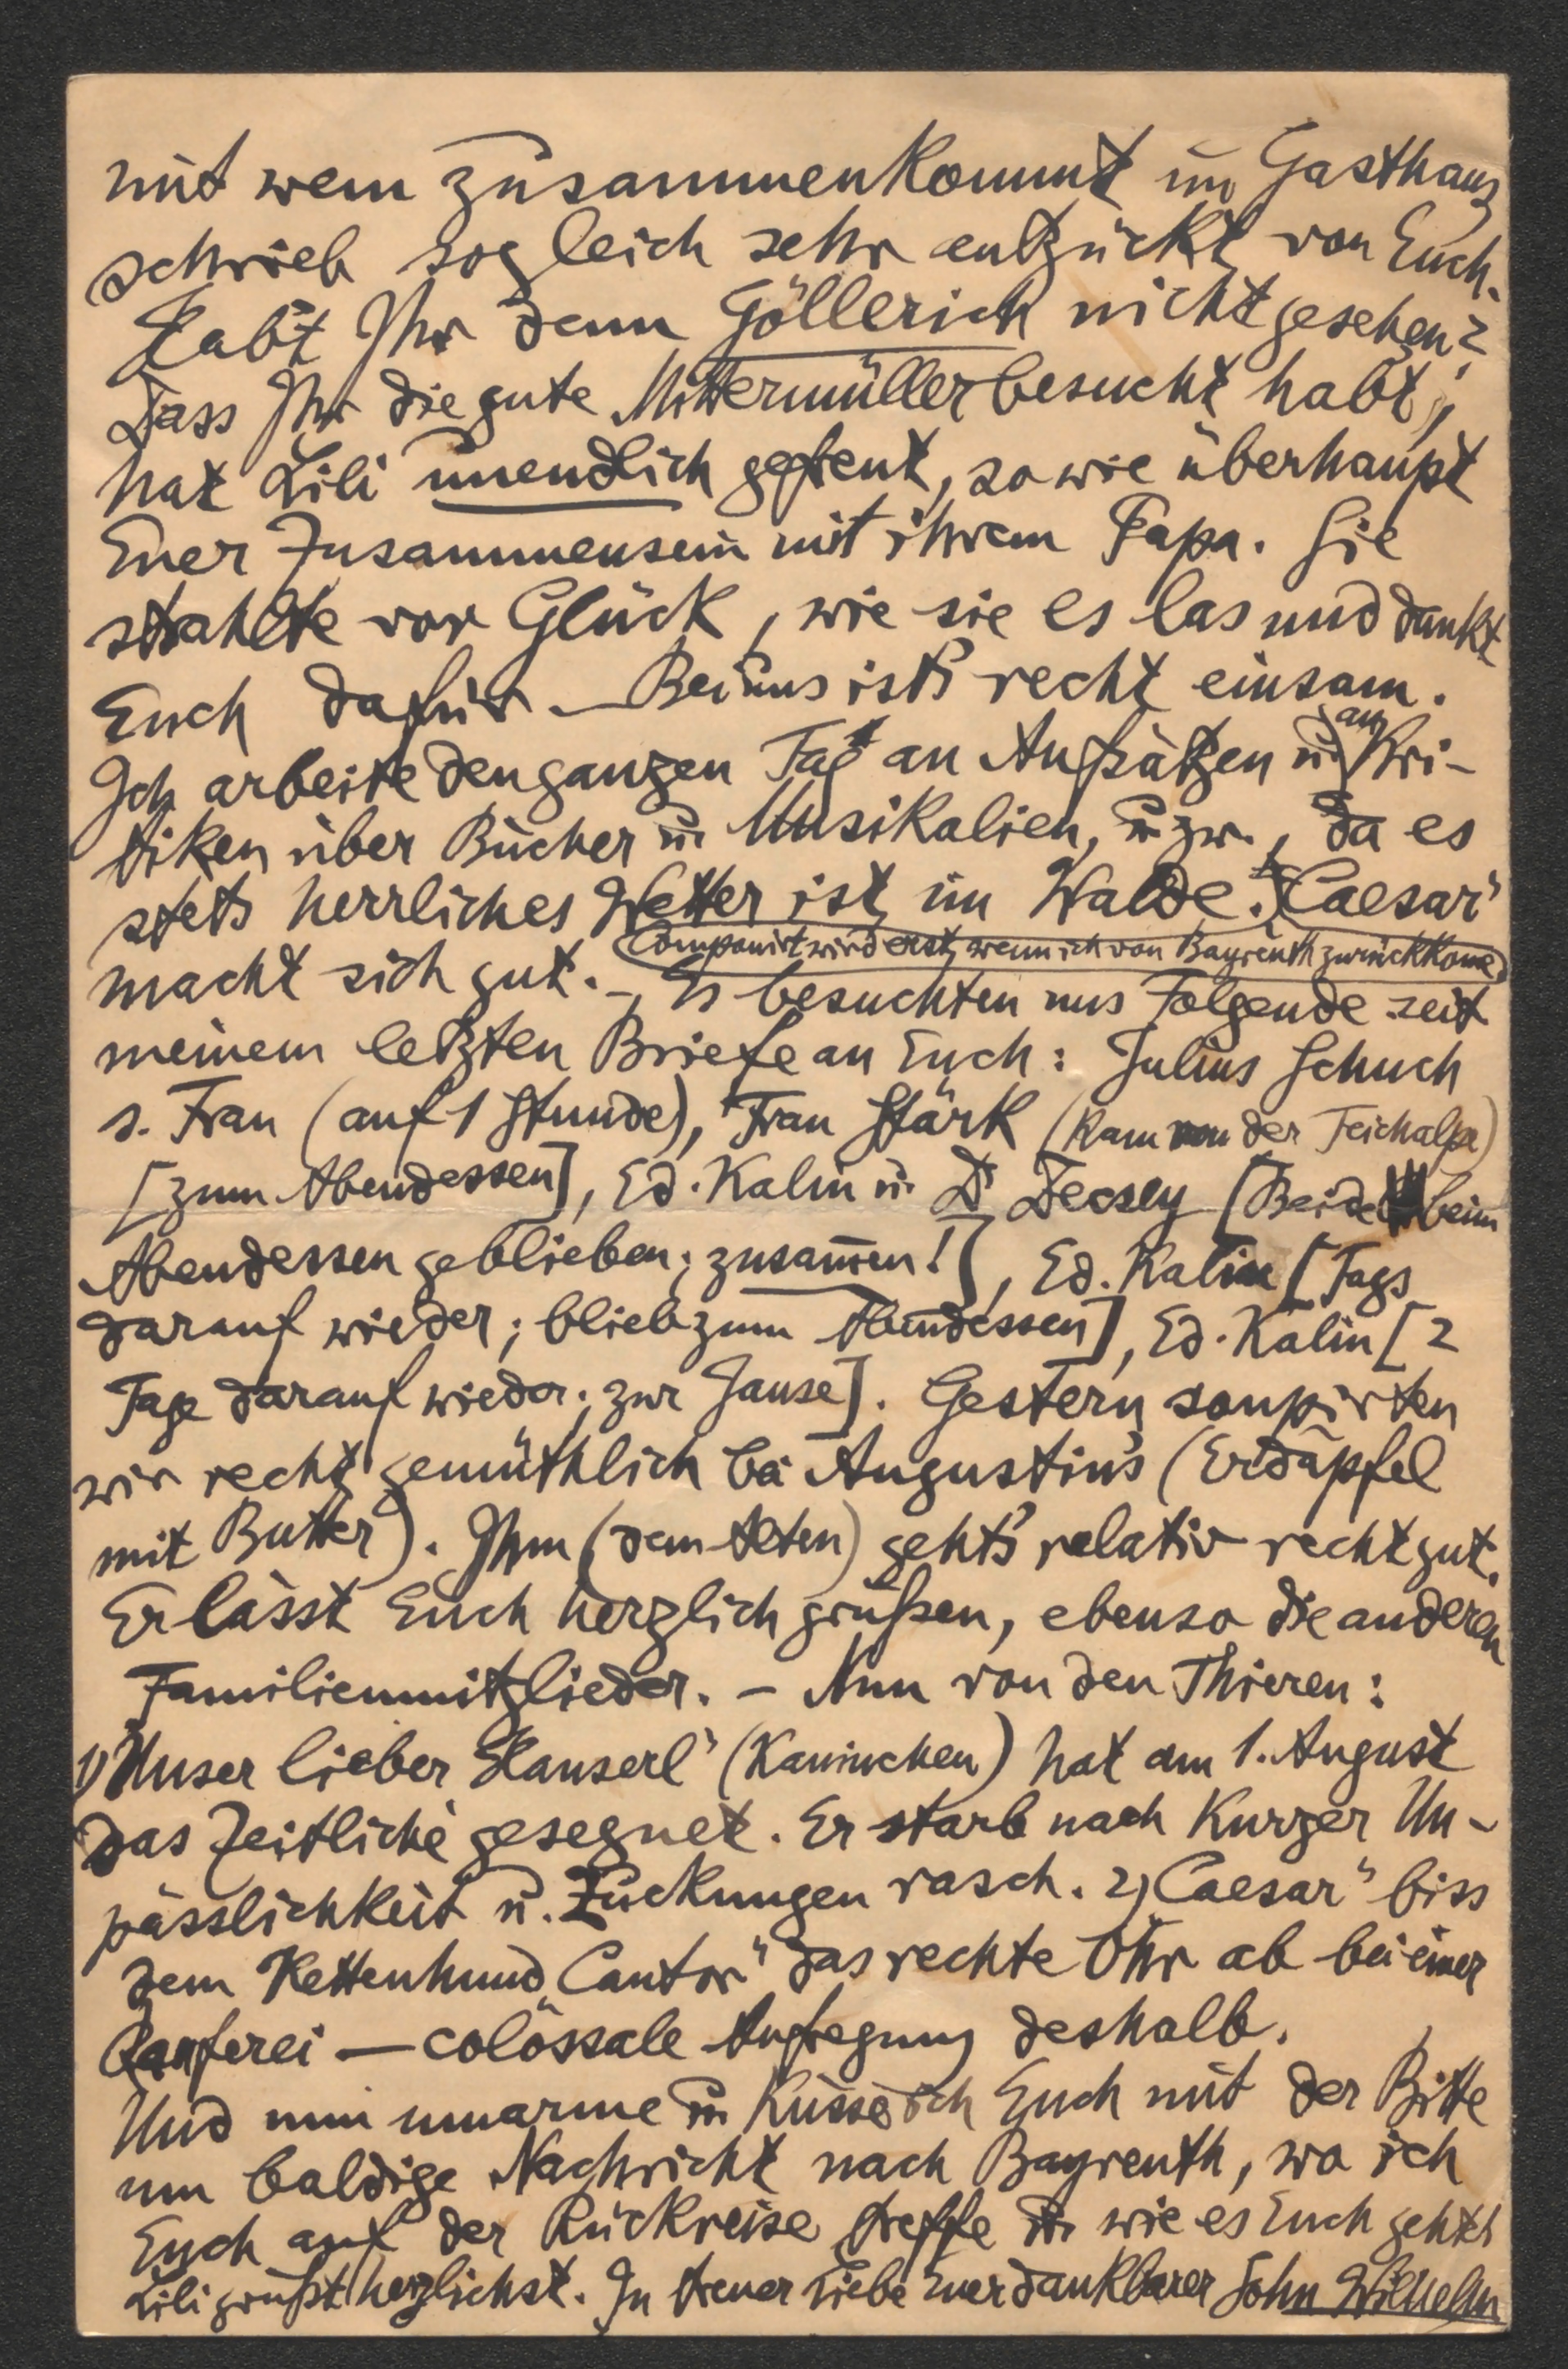 mit wem zusammenkommt im Gasthaus
schrieb sogleich sehr entzückt von Euch.
Habt Ihr denn Göllerich nicht gesehen?
Dass Ihr die gute Mittermüller besucht habt,
hat Lili unendlich gefreut, sowie überhaupt
Euer Zusammensein mit ihrem Papa. Sie
strahlte vor Glück, wie sie es las und dankt
Euch dafür. – Bei uns ist's recht einsam.
Ich arbeite den ganzen Tag an Aufsätzen u. an Kri-
tiken über Bücher u. Musikalien, u. zw., da es
stets herrliches Wetter ist, im Walde. „Caesar"
(Componirt wird erst, wenn ich von Bayreuth zurückkome)
macht sich gut. – Es besuchten uns Folgende seit
meinem letzten Briefe an Euch: Julius Schuch
s. Frau (auf 1 Stunde), Frau Stärk (kam von der Teichalpe)
[zum Abendessen], Ed. Kalin u. Dr Decsey [Beide beim
Abendessen geblieben; zusamen!], Ed. Kalin [Tags
darauf wieder; blieb zum Abendessen], Ed. Kalin [2
Tage darauf wieder; zur Jause]. Gestern soupirten
wir recht gemüthlich bei Augustin's (Erdäpfel
mit Butter). Ihm (dem Alten) geht's relativ recht gut.
Er lässt Euch herzlich grüßen, ebenso die anderen
Familienmitglieder. – Nun von den Thieren:
1) Unser lieber „Hanserl" (Kaninchen) hat am 1. August
das Zeitliche gesegnet. Er starb nach kurzer Un-
pässlichkeit u. Zuckungen rasch. 2) „Caesar" biss
dem Kettenhund „Cantor" das rechte Ohr ab bei einer
Rauferei – colossale Aufregung deshalb.
Und nun umarme u. küsse ich Euch mit der Bitte
um baldige Nachricht nach Bayreuth, wo ich
Euch auf der Rückreise treffe u. wie es Euch geht.
Lili grüßt herzlichst. In treuer Liebe Euer dankbarer Sohn Wilhelm